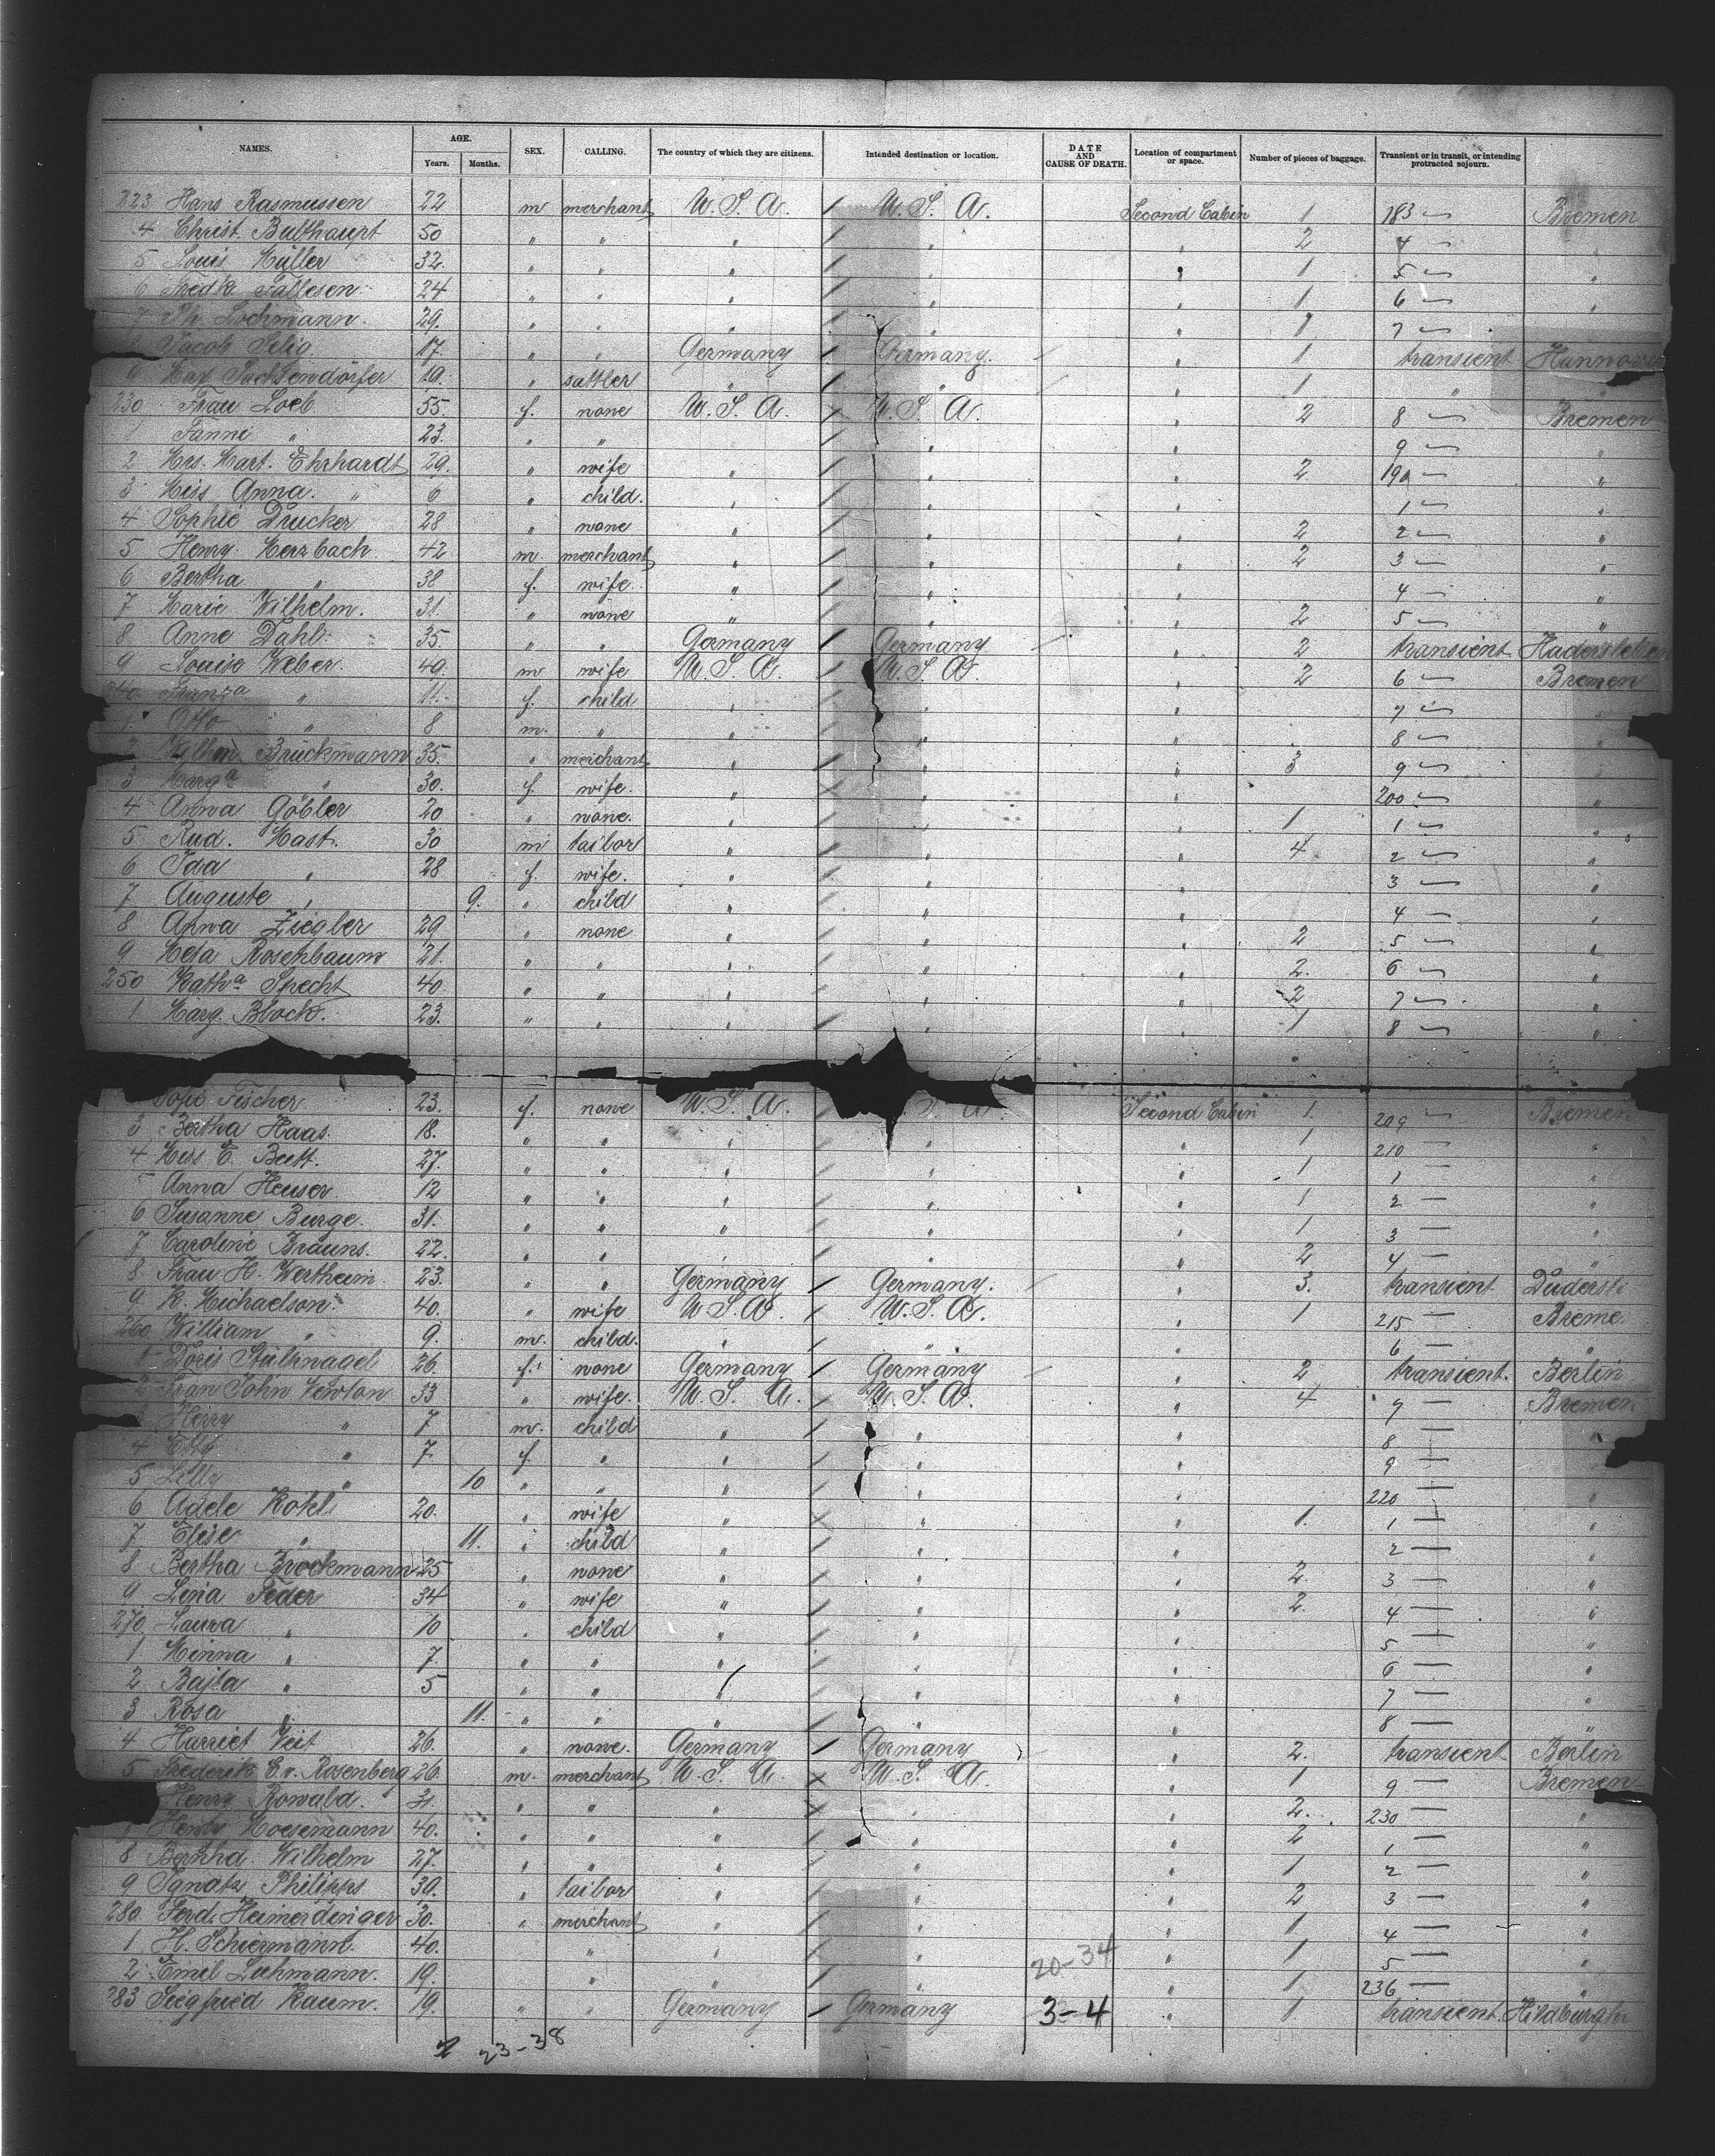 NAMES. AGE. Years. Months. SEX. CALLING. The country of which they are citizens. Intended destination or location. DATE AND CAUSE OF DEATH. Location of compartment or space. Number of pieces of baggage. Transient or in transit, or intending protracted sojourn.
223 Hans Rasmussen 22 m merchant U. S. A. / U. S. A. Second Cabin 1 183 Bremen
4 Christ. Bulthaupt 50 " " " / " " 2 4 "
5 Louis Müller 32. " " " / " " 1 5 "
6 Fredk. Fallesen 24 " " " / " " 1 6 "
7 Lochmann. 29. " " " / " " 1 7 "
Jacob Selig. 17. " " Germany / Germany. " 1 transient Hannover
9 Max Sachsendörfer 19. " sattler " / " " 1 "
230 Frau Loeb 55. f. none U. S. A. / U. S. A. " 2 8 Bremen
1 Fanni " 23. " " " / " " 9 "
2 Mrs. Mart. Ehrhardt 29. " wife " / " " 2 190 "
3 Miss Anna. " 6 " child. " / " " 1 "
4 Sophie Drucker 28 " none " / " " 2 2 "
5 Henry Merzbach. 42 m. merchant " / " " 2 3 "
6 Bertha " 38 f. wife. " / " " 4 "
7 Marie Wilhelm. 31. " none " / " " 2 5 "
8 Anne Dahl 35. " " Germany / Germany " 2 transient Hadersleben
9 Louise Weber. 49. m wife U. S. A. / U. S. A. " 2 6 Bremen
240 Franza " 11. f. child " / " " 7 "
1 Otto " 8 m. " " / " " 8 "
2 Wilhm. Bruckmann 35. " merchant " / " " 3 9 "
3 Marga " 30. f. wife. " x " " 200 "
4 Anna Göbler 20 " none. " / " " 1 1 "
5 Rud. Mast. 30 m tailor " / " " 4 2 "
6 Ida " 28 f. wife. " / " " 3 "
7 Auguste " 9. " child " / " " 4 "
8 Anna Ziegler 29 " none " / " " 2 5 "
9 Meta Rosenbaum 21. " " " / " " 2. 6 "
250 Katha Specht 40. " " " / " " 2 7 "
1 Marg. Block. 23. " " " / " " 1 8 "
Fischer 23. f. none U. S. A. Second Cabin 1. 209 Bremen
3 Bertha Haas. 18. " " " / " " 1 210 "
4 Miss E. Butt. 27. " " " / " " 1 1 "
5 Anna Heuser. 12 " " " / " " 1 2 "
6 Susanne Burge. 31. " " " / " " 1 3 "
7 Caroline Brauns. 22. " " " / " " 2 4 "
8 Frau H. Wertheim 23. " " Germany / Germany. " 3. transient
9 R. Michaelson 40. " wife U. S. A. / U. S. A. " 1 215 Breme
260 William " 9. m. child. " / " " 6 "
1 Doris Stülpnagel 26 f. none Germany / Germany " 2 transient. Berlin
2 Frau John Newton 33 " wife. U. S. A. / U. S. A. " 4 7 Bremen
3 Herry " 7 m. child " / " " 8 "
4 Etty " 7. f. " " / " " 9
5 Lilly " 10 " " " / " " 220 "
6 Adele Kohl 20. " wife " x " " 1. 1 "
7 Elise " 11. " child " / " " 2 "
8 Bertha Brockmann 25 " none " / " " 2. 3 "
9 Lina Feder 34 " wife " / " " 2 4 "
270 Laura " 10 " child " / " " 5 "
1 Minna " 7. " " " / " " 6 "
2 Bajla " 5 " " " / " " 7 "
3 Rosa " 11. " " " / " " 8 "
4 Harriet Veit 26. " none. Germany / Germany " 2. transient Berlin
5 Frederik E. v. Rosenberg 26. m. merchant U. S. A. x U. S. A. " 1 9 Bremen
Henry Rowald. 31. " " " x " " 2. 230 "
Henry Moesemann 40. " " " / " " 2 1 "
8 Bernhd. Wilhelm 27. " " " / " " 1 2 "
9 Ignatz Philipps 30. " tailor " / " " 2 3 "
280 Ferd. Heimerdinger 30. " merchant " / " " 1 4 "
1 H. Schiermann. 40. " " / " " 1 5 "
2 Emil Luhmann. 19. " " / " 20-34 " 1. 236 "
283 Siegfried Raum. 19. " " Germany / Germany 3-4 " 1. transient
23-38